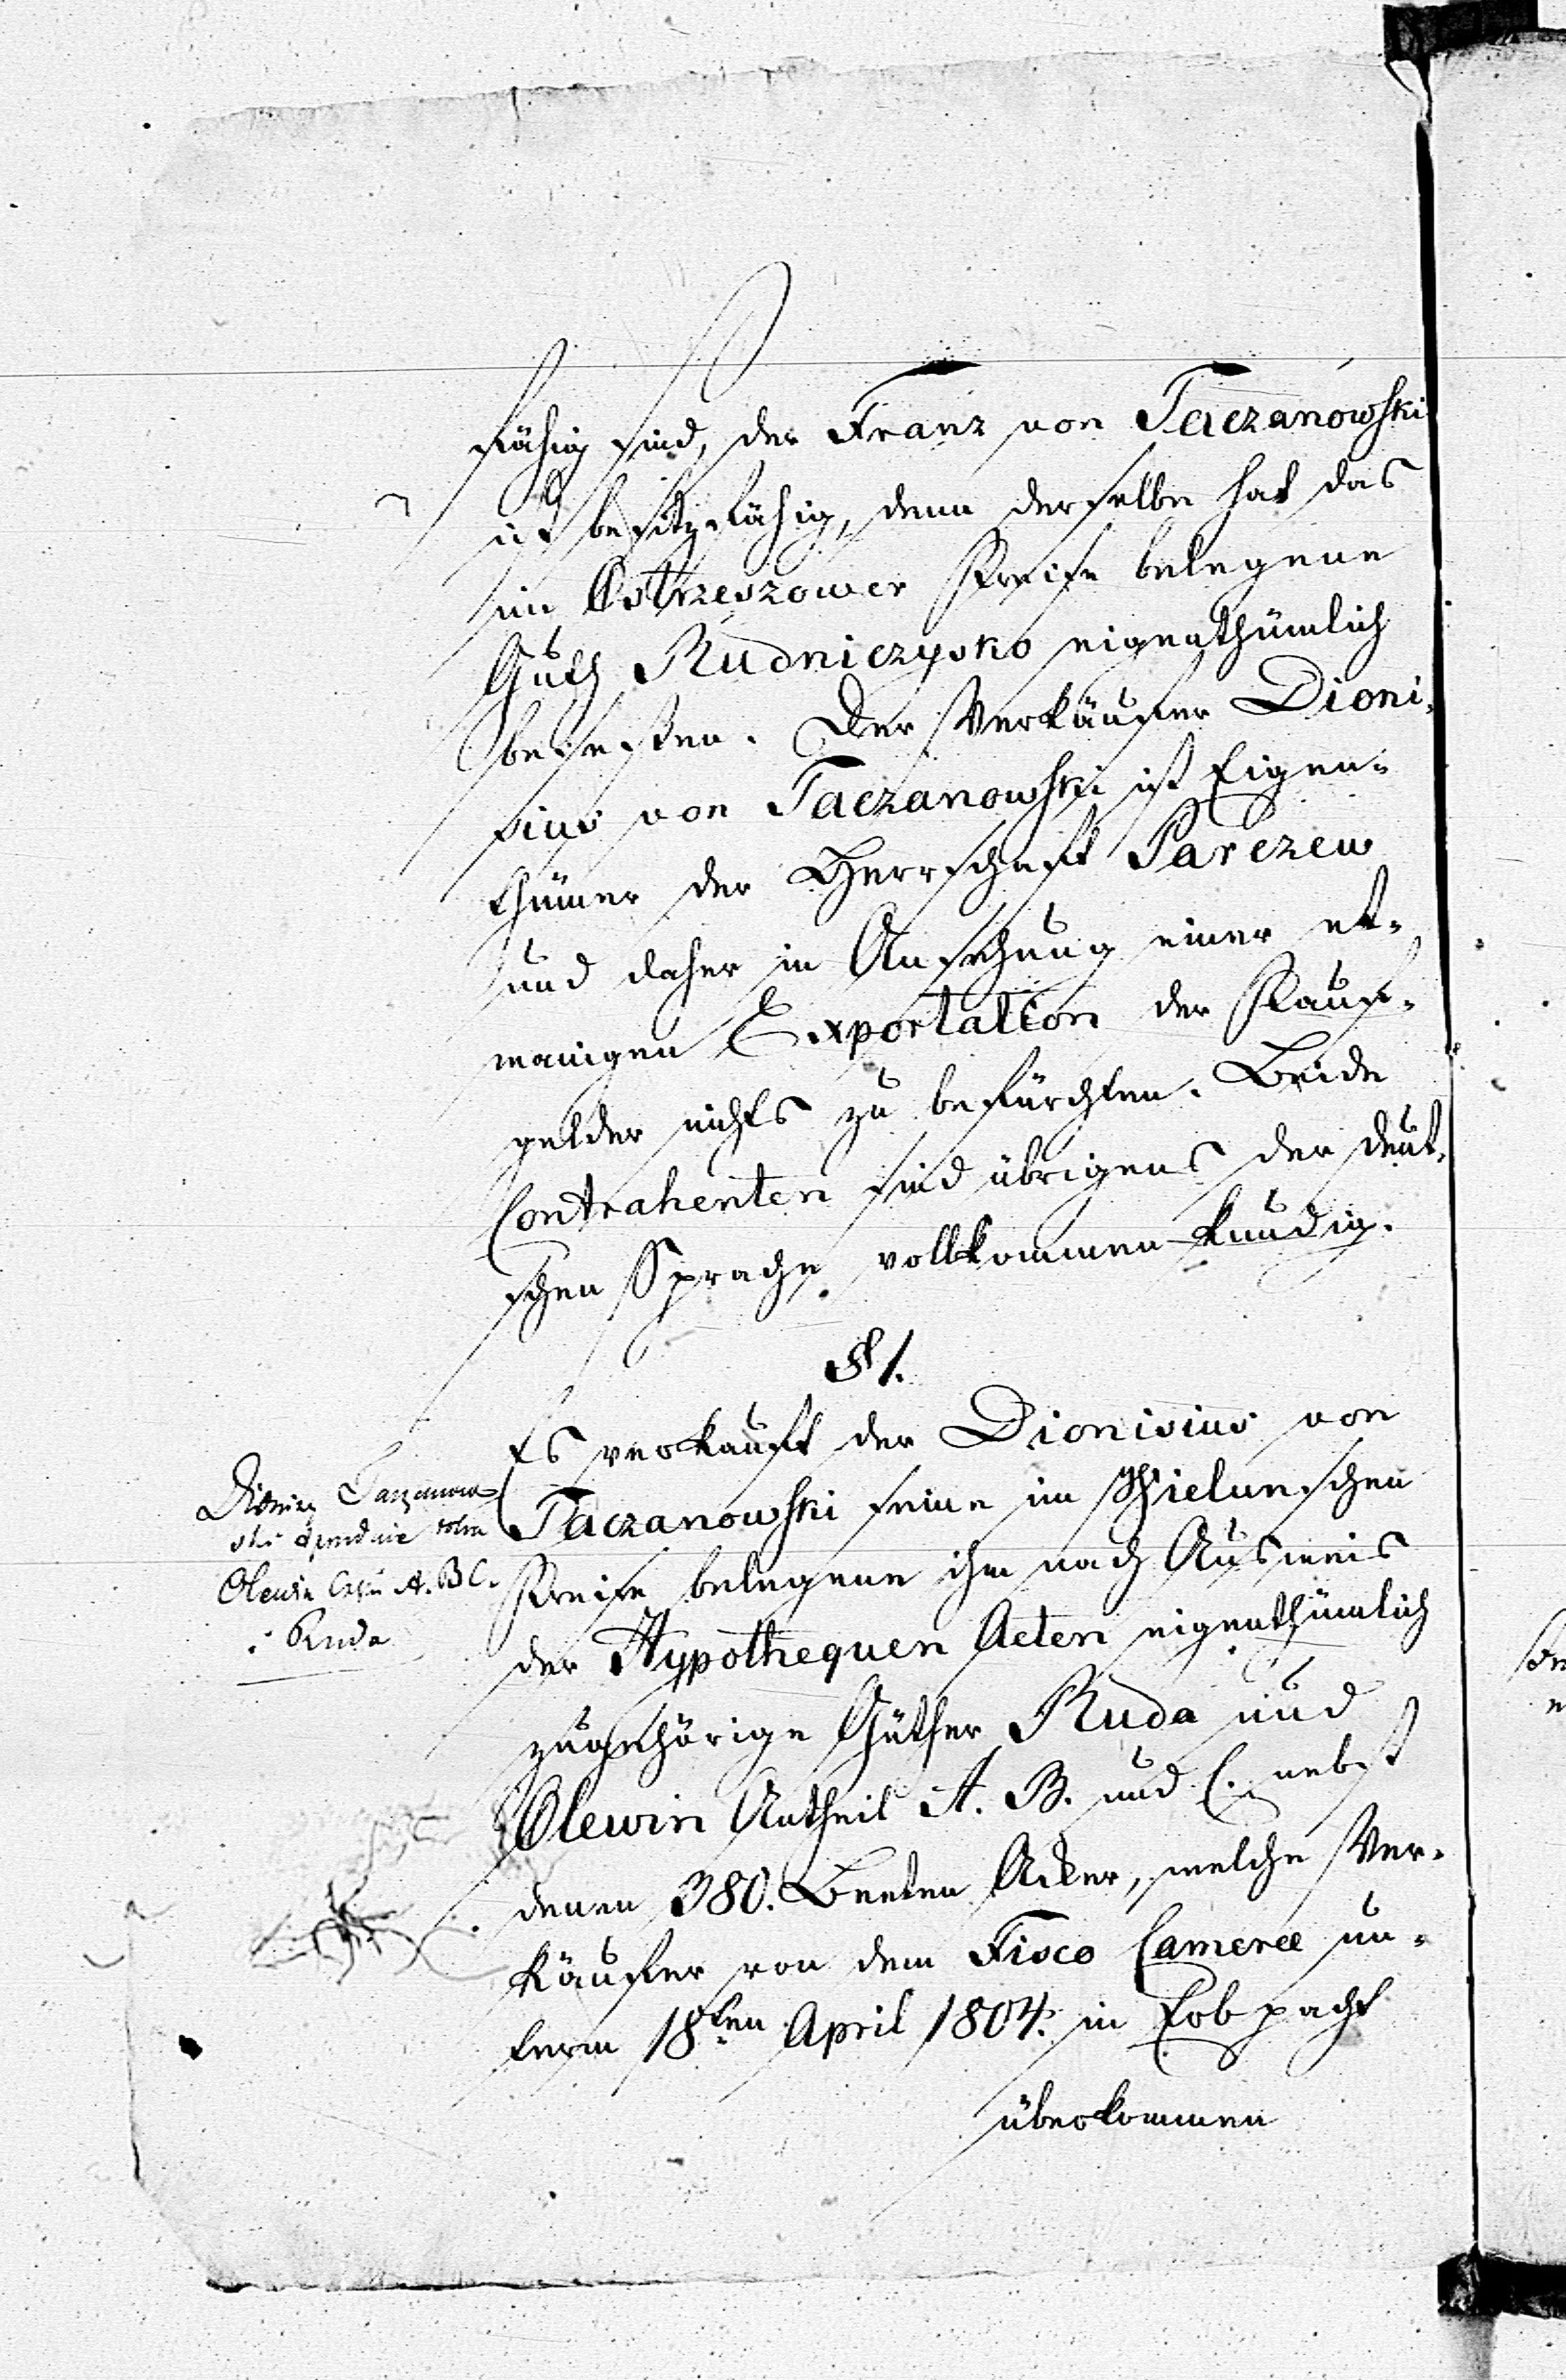 fähig sind, der Franz von Taczanowski
ist besitzfähig, denn derselbe hat das
im Ostrzeszower Kreise belegene
Guth Rudniczysko eigenthümlich
besessen. Der Verkäufer Dioni-
sius von Taczanowski ist Eigen-
thümer der Herrschaft Parczew
und daher in Ansehung einer et-
wanigen Exportation der Kauf-
gelder nichts zu befürchten. Beide
Contrahenten sind übrigens der deut-
schen Sprache vollkommen kundig.
§ 1.
Es verkauft der Dionisius von
Taczanowski seine im Wielunschen
Kreise belegene ihm nach Ausweis
der Hypothequen Acten eigenthümlich
zugehörige Güther Ruda und
Olewin Antheil A. B. und C. nebst
denen 380. Beeten Acker, welche Ver-
käufer von dem Fisco Camerae un-
term 18ten April 1804. in Erbpacht
überkommen
Dionizy Taczanow
ski dobra
Olewin A. B C.
i Ruda